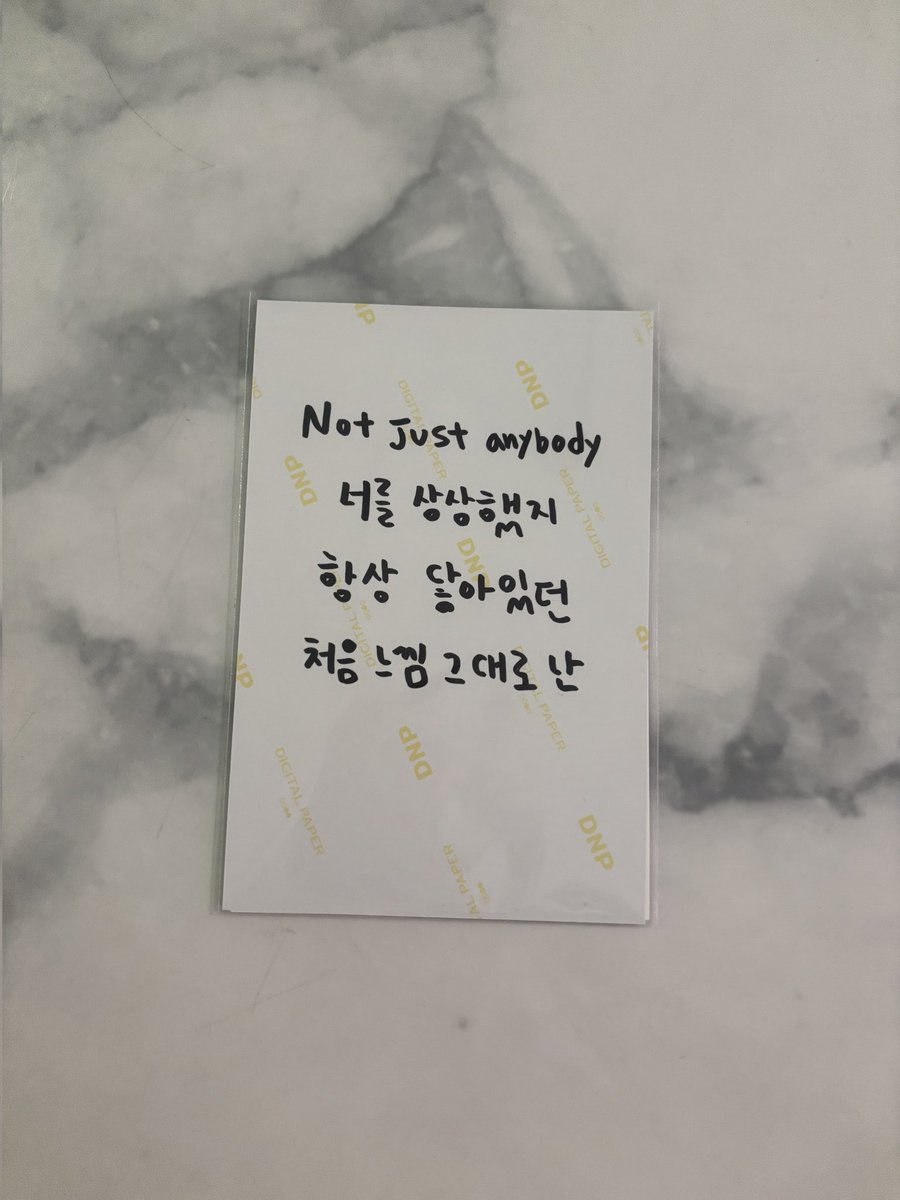 DNP
DNP
DIGITAL PAPER
Not Just anybody
DNP
DIGITAL PAPER
너를 상상했지
DNP
항상 닿아있던
DIGITAL PAPER
처음 느낌 그대로 난
DIGITAL PAPER
DNP
DIGITAL PAPER
DNP